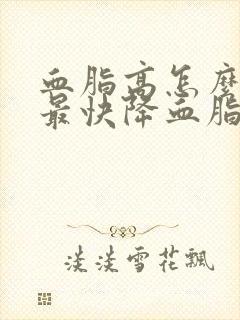 血脂高怎麽
最快降血脂
淡淡雪花飄